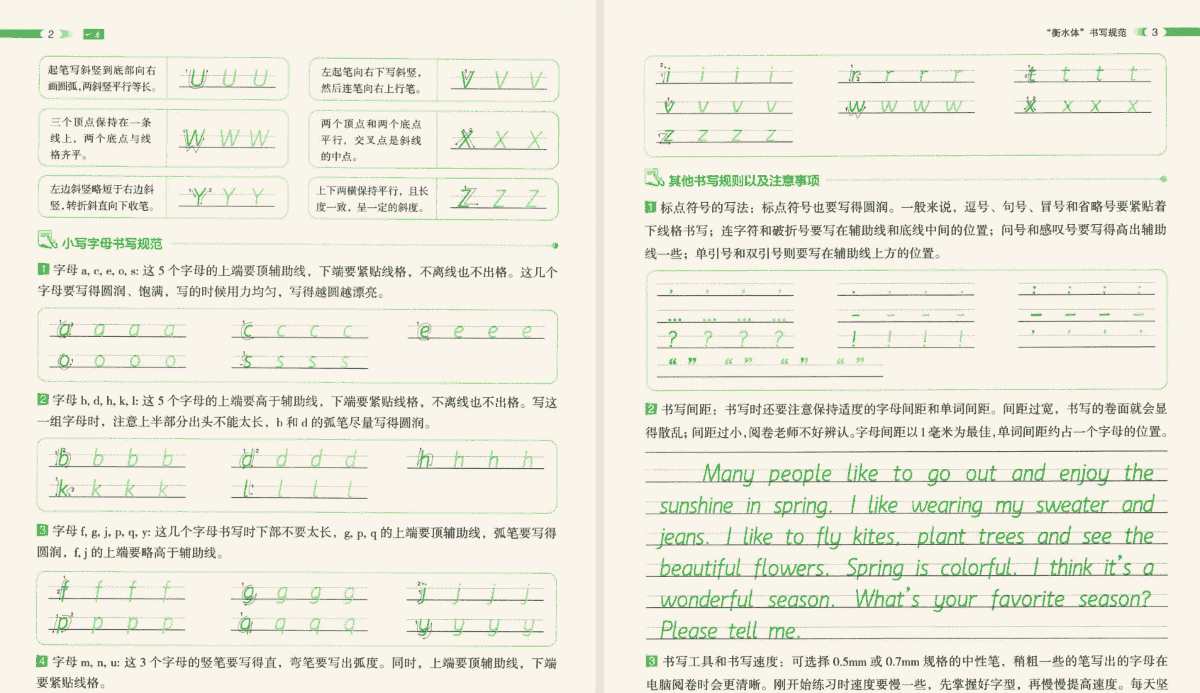 2
起笔写斜竖到底部向右
画圆弧,两斜竖平行等长。
U U U
左起笔向右下写斜竖,
然后连笔向右上行笔。
V V V
三个顶点保持在一条
线上,两个底点与线
格齐平。
W W W
两个顶点和两个底点
平行,交叉点是斜线
的中点。
X X X
左边斜竖略短于右边斜
竖,转折斜直向下收笔。
Y Y Y
上下两横保持平行,且长
度一致,呈一定的斜度。
Z Z Z
小写字母书写规范
1 字母 a, c, e, o, s: 这 5 个字母的上端要顶辅助线,下端要紧贴线格,不离线也不出格。这几个
字母要写得圆润、饱满,写的时候用力均匀,写得越圆越漂亮。
a a a a c c c c e e e e
o o o o s s s s
2 字母 b, d, h, k, l: 这 5 个字母的上端要高于辅助线,下端要紧贴线格,不离线也不出格。写这
一组字母时,注意上半部分出头不能太长,b 和 d 的弧笔尽量写得圆润。
b b b b d d d d h h h h
k k k k l l l l
3 字母 f, g, j, p, q, y: 这几个字母书写时下部不要太长,g, p, q 的上端要顶辅助线,弧笔要写得
圆润,f, j 的上端要略高于辅助线。
f f f f g g g g j j j j
p p p p q q q q y y y y
4 字母 m, n, u: 这 3 个字母的竖笔要写得直,弯笔要写出弧度。同时,上端要顶辅助线,下端
要紧贴线格。
“衡水体”书写规范 3
i i i i r r r r t t t t
v v v v w w w w x x x x
z z z z
其他书写规则以及注意事项
1 标点符号的写法:标点符号也要写得圆润。一般来说,逗号、句号、冒号和省略号要紧贴着
下线格书写;连字符和破折号要写在辅助线和底线中间的位置;问号和感叹号要写得高出辅助
线一些;单引号和双引号则要写在辅助线上方的位置。
, , , , . . . . : : : :
... ... ... ... - - - - — — — —
? ? ? ? ! ! ! ! ’ ’ ’ ’
“ ” “ ” “ ” “ ”
2 书写间距:书写时还要注意保持适度的字母间距和单词间距。间距过宽,书写的卷面就会显
得散乱;间距过小,阅卷老师不好辨认。字母间距以1毫米为最佳,单词间距约占一个字母的位置。
Many people like to go out and enjoy the
sunshine in spring. I like wearing my sweater and
jeans. I like to fly kites, plant trees and see the
beautiful flowers. Spring is colorful. I think it's a
wonderful season. What's your favorite season?
Please tell me.
3 书写工具和书写速度:可选择 0.5mm 或 0.7mm 规格的中性笔,稍粗一些的笔写出的字母在
电脑阅卷时会更清晰。刚开始练习时速度要慢一些,先掌握好字型,再慢慢提高速度。每天坚